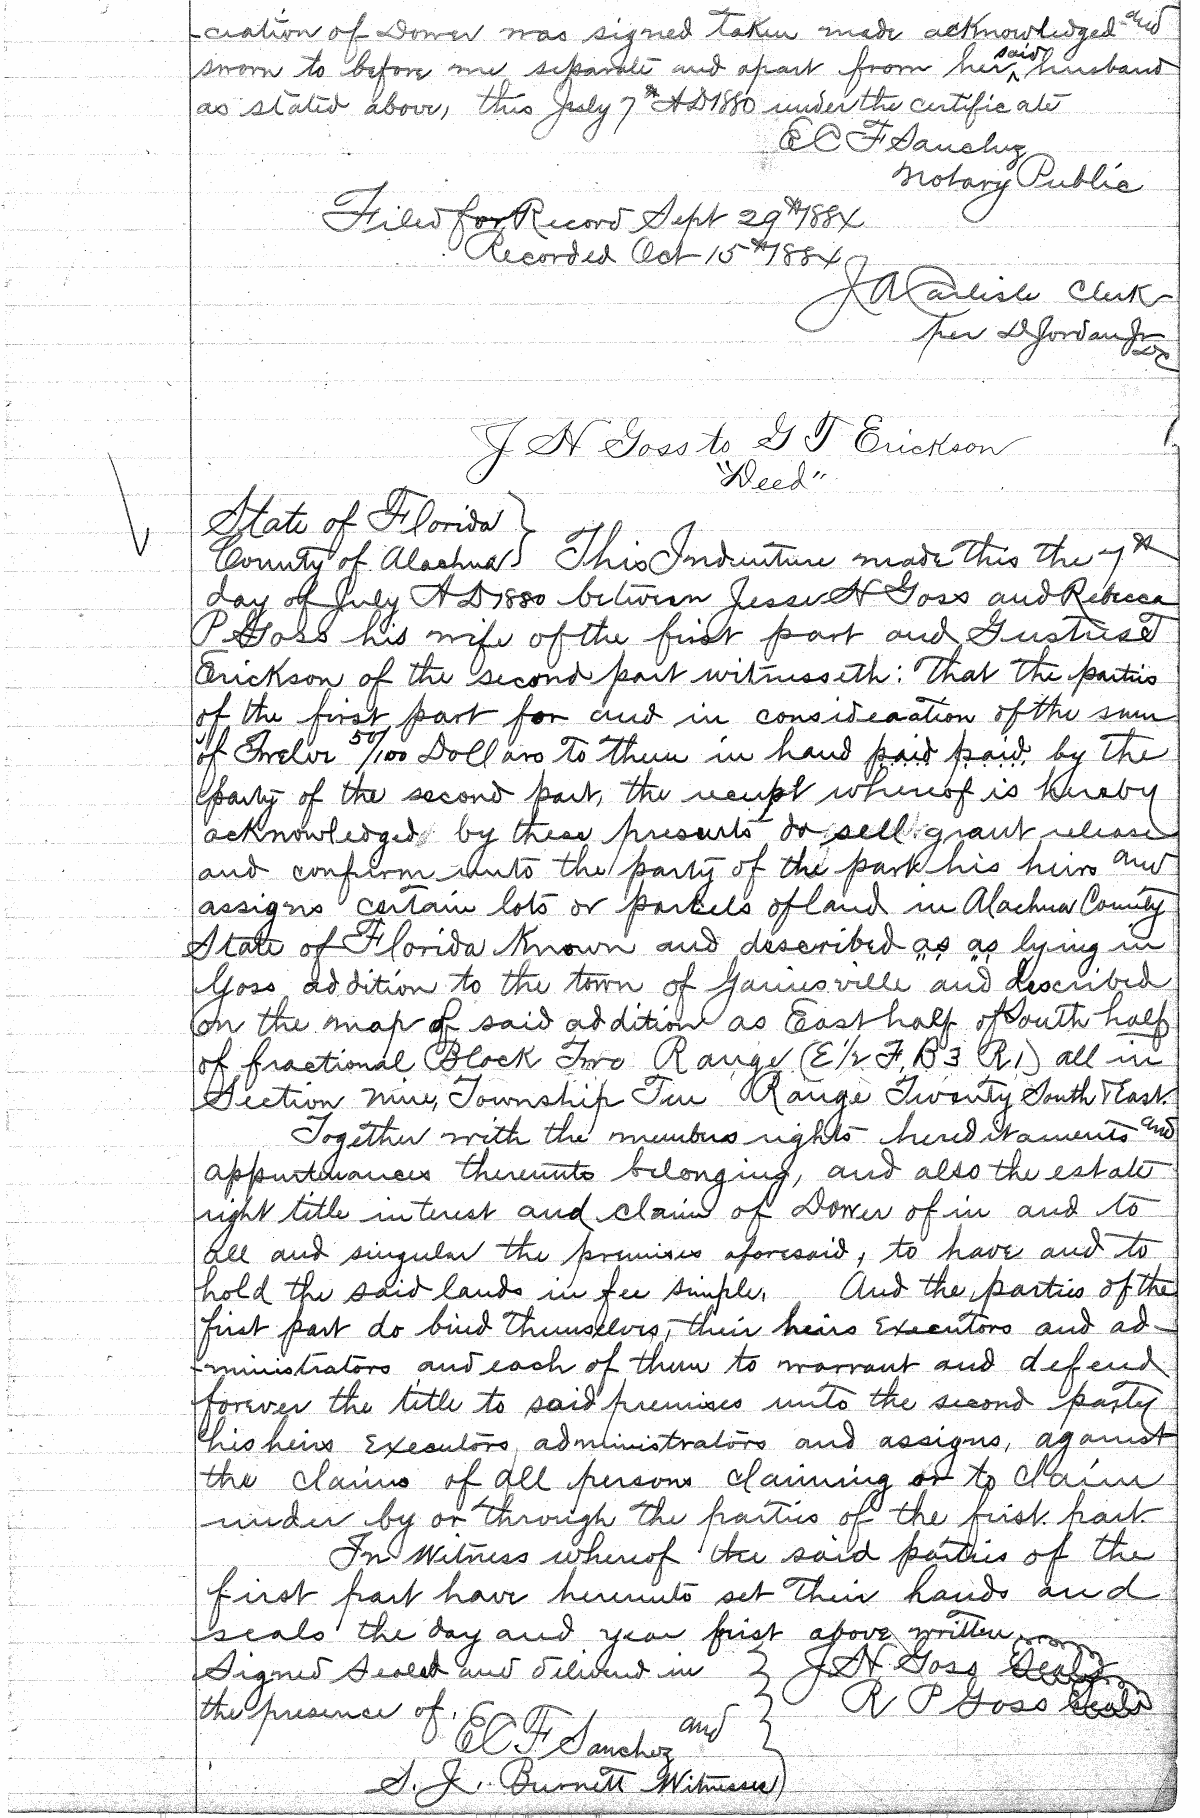 -ciation of Dower was signed taken made acknowledged and
sworn to before me separate and apart from her said husband
as stated above, this July 7th AD 1880 under the certificate
E C F Sanchez
Notary Public
Filed for Record Sept 29th 1884
Recorded Oct 15th 1884
J A Carlisle Clerk
per D Jordan Jr
DC
J H Goss to G T Erickson
"Deed"
State of Florida }
County of Alachua } This Indenture made this the 7th
day of July A D 1880 between Jesse H Goss and Rebecca
P Goss his wife of the first part and T
Erickson of the second part witnesseth: That the parties
of the first part for and in consideration of the sum
of Twelve 50/100 Dollars to them in hand paid paid by the
party of the second part, the receipt whereof is hereby
acknowledged by these presents do sell grant release
and confirm unto the party of the part his heirs and
assigns certain lots or parcels of land in Alachua County
State of Florida Known and described as as lying in
Goss addition to the town of Gainesville and described
on the map of said addition as East half of South half
of fractional Block Two Range (E 1/2 F. B 3 R 1) all in
Section nine, Township Ten Range Twenty South & East.
Together with the members rights hereditaments and
appurtenances thereunto belonging, and also the estate
right title interest and claim of Dower of in and to
all and singular the premises aforesaid, to have and to
hold the said lands in fee simple. And the parties of the
first part do bind themselves, their heirs Executors and ad-
-ministrators and each of them to warrant and defend
forever the title to said premises unto the second party
his heirs Executors, administrators and assigns, against
the claims of all persons claiming or to claim
under by or through the parties of the first part
In Witness whereof the said parties of the
first part have hereunto set their hands and
seals the day and year first above written.
Signed Sealed and delivered in } J H Goss Seal
the presence of. R P Goss Seal
E C F Sanchez and
S. J. Burnett Witnesses